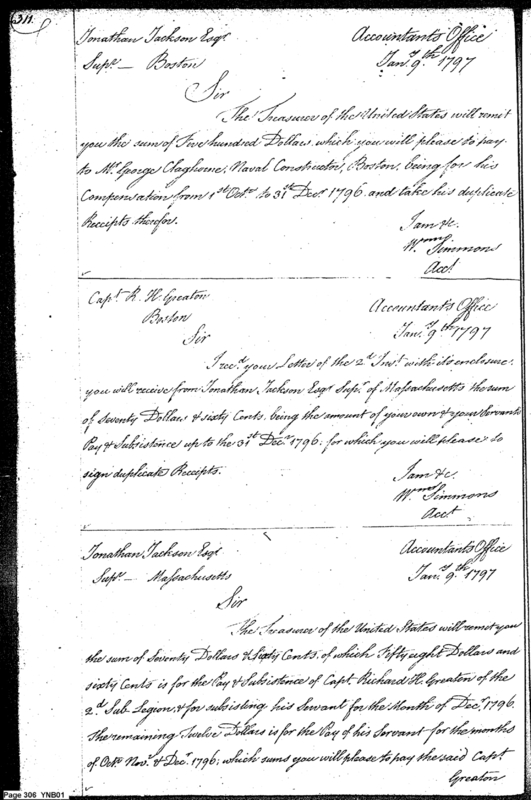 311.
Jonathan Jackson Esqr Accountants Office
Supr — Boston Jany 9th 1797
Sir
The Treasurer of the United States will remit
you the sum of Five hundred Dollars which you will please to pay
to Mr George Claghorne, Naval Constructor, Boston, being for his
Compensation from 1st Octr to 31st Decr 1796 and take his duplicate
Receipts therefor.
I am &c.
Wm Simmons
Acct
Capt R. H. Greaton Accountants Office
Boston Jany 9th 1797
Sir
I recd your Letter of the 2d Inst with its enclosure.
you will receive from Jonathan Jackson Esqr Supr of Massachusetts the sum
of Seventy Dollars & sixty Cents. being the amount of your own & your Servants
Pay & Subsistence up to the 31st Decr 1796. for which you will please to
sign duplicate Receipts.
I am &c.
Wm Simmons
Acct
Jonathan Jackson Esqr Accountants Office
Supr — Massachusetts Jany 9th 1797
Sir
The Treasurer of the United States will remet you
the sum of Seventy Dollars & Sixty Cents. of which Fifty eight Dollars and
sixty Cents is for the Pay & Subsistence of Capt Richard H. Greaton of the
2d Sub Legion, & for subsisting his Servant for the Month of Decr 1796.
The remaining Twelve Dollars is for the Pay of his Servant for the months
of Octr Novr & Decr 1796; which sums you will please to pay the said Capt
Greaton
Page 306 YNB01